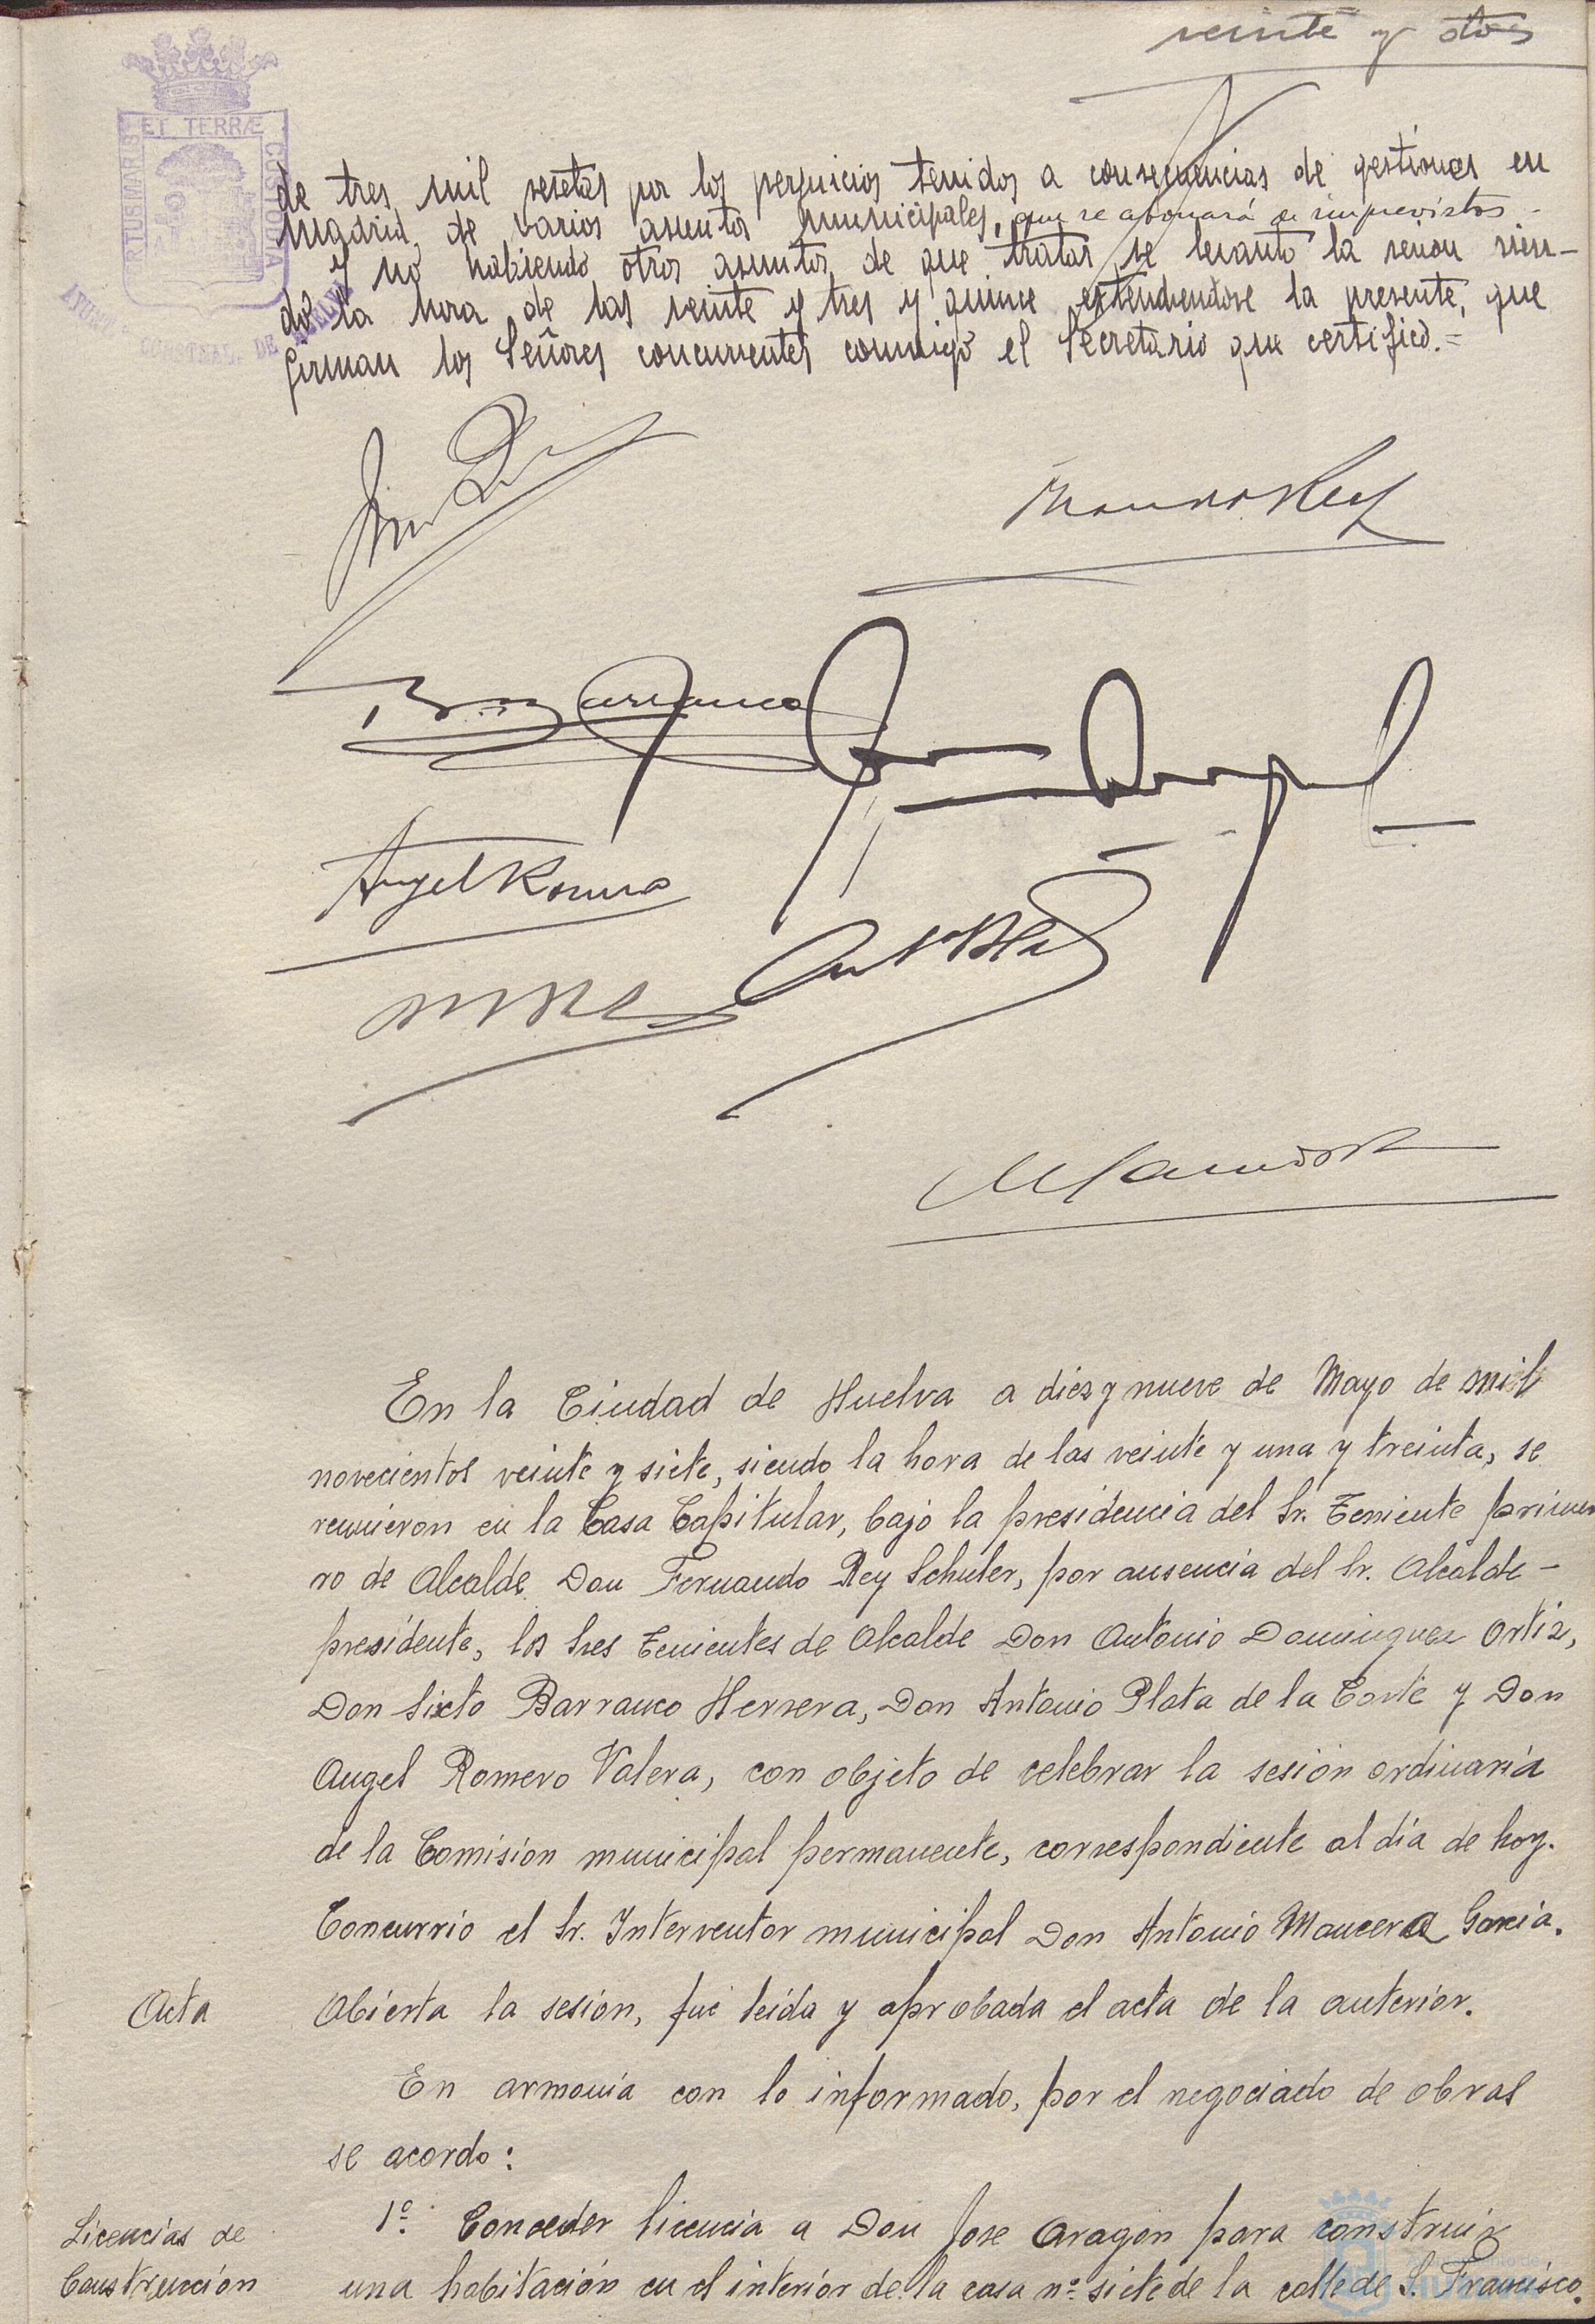 veinte y dos
ET TERRÆ
CUSTODIA
de tres mil pesetas por los perjuicios tenidos a consecuencias de gestiones en
Madrid, de varios asuntos municipales, que se abonará de imprevistos -
Y no habiendo otros asuntos de que tratar se levantó la sesion sien-
do la hora de las veinte y tres y quince extendiendose la presente, que
firman los Señores concurrentes conmigo el Secretario que certifico.=
Angel Romero
En la Ciudad de Huelva a diez y nueve de Mayo de mil
novecientos veinte y siete, siendo la hora de las veinte y una y treinta, se
reunieron en la Casa Capitular, bajo la presidencia del Sr. Teniente prime
ro de Alcalde Don Fernando Rey Schuler, por ausencia del Sr. Alcalde-
presidente, los Sres Tenientes de Alcalde Don Antonio Dominguez Ortiz,
Don Sixto Barranco Herrera, Don Antonio Plata de la Corte y Don
Angel Romero Valera, con objeto de celebrar la sesión ordinaria
de la Comisión municipal permanente, correspondiente al día de hoy.
Concurrio el Sr. Interventor municipal Don Antonio Mancera Garcia.
Acta
Abierta la sesión, fué leída y aprobada el acta de la anterior.
En armonía con lo informado, por el negociado de obras
se acordo:
Licencias de
Construcción
1º. Conceder licencia a Don Jose Aragón para construir
una habitación en el interior de la casa nº siete de la calle de S. Francisco.